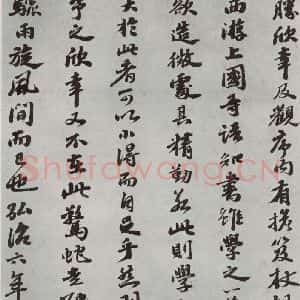 勝欣幸及觀序尚有擔笈杖
西游上國等語知書雖學之
欲造微處其精勤若此則學
大於此者可以小得而自已乎然則
予之欣幸又不在此驚蛇走
驟雨旋風間而已也弘治六年
Shufawang.CN